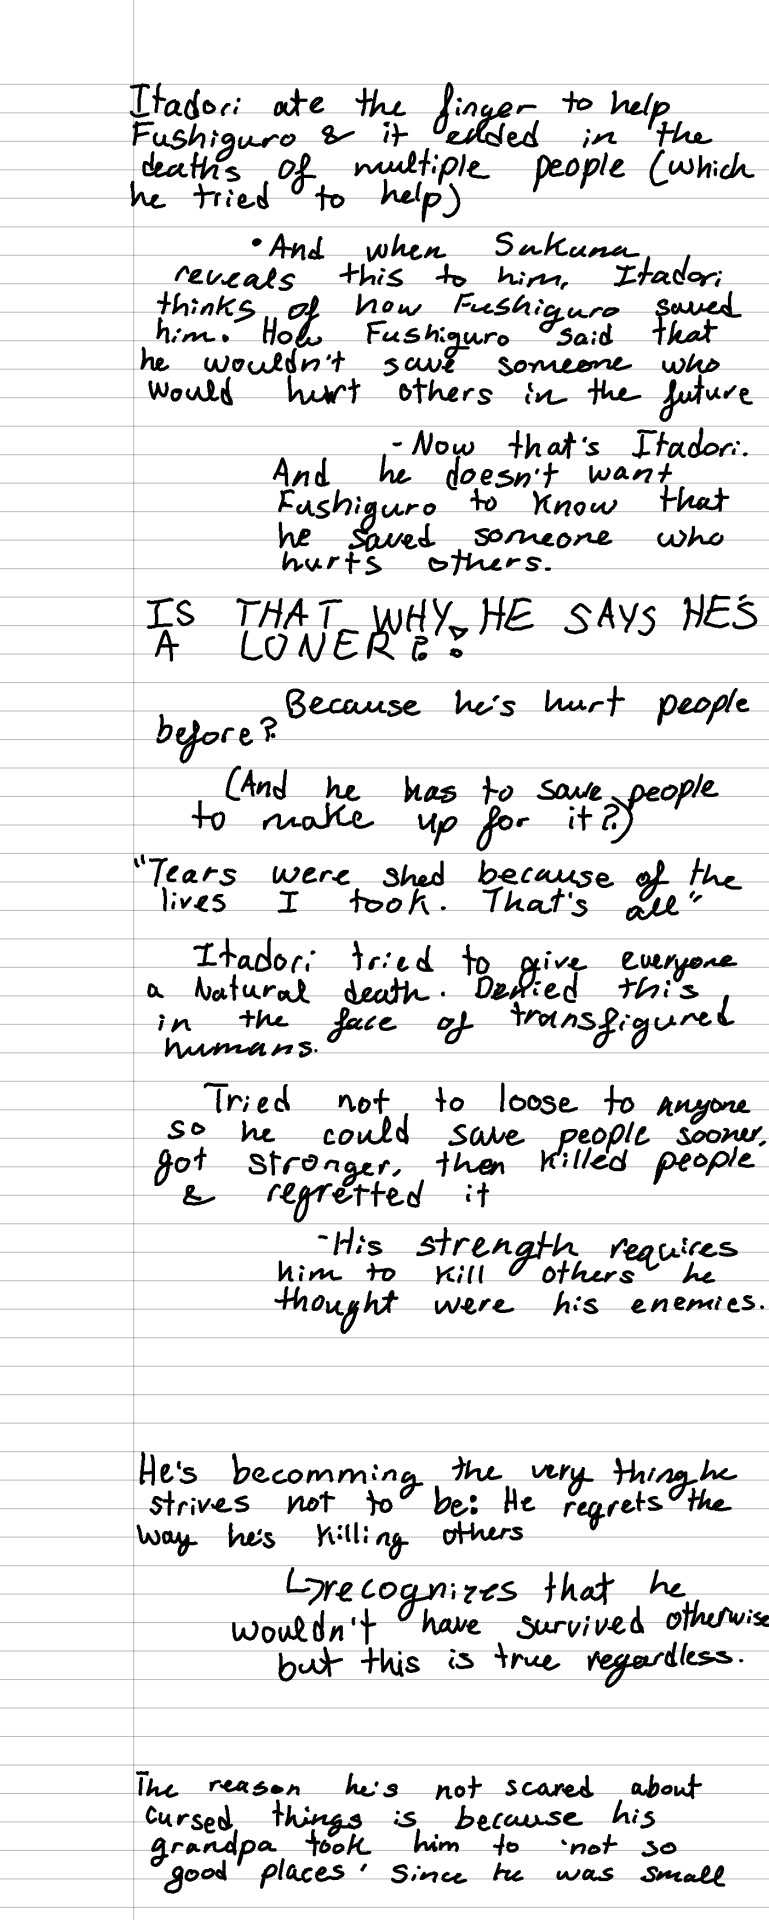 Itadori ate the finger to help
Fushiguro & it ended in the
deaths of multiple people (which
he tried to help)
•And when Sukuna
reveals this to him, Itadori
thinks of how Fushiguro saved
him. How Fushiguro said that
he wouldn't save someone who
would hurt others in the future
-Now that's Itadori.
And he doesn't want
Fushiguro to know that
he saved someone who
hurts others.
IS THAT WHY HE SAYS HE'S
A LONER??
Because he's hurt people
before?
(And he has to save people
to make up for it?)
"Tears were shed because of the
lives I took. That's all"
Itadori tried to give everyone
a Natural death. Denied this
in the face of transfigured
humans.
Tried not to loose to anyone
so he could save people sooner,
got stronger, then killed people
& regretted it
-His strength requires
him to kill others he
thought were his enemies.
He's becomming the very thing he
strives not to be: He regrets the
way he's killing others
↳recognizes that he
wouldn't have survived otherwise
but this is true regardless.
The reason he's not scared about
cursed things is because his
grandpa took him to 'not so
good places' since he was small